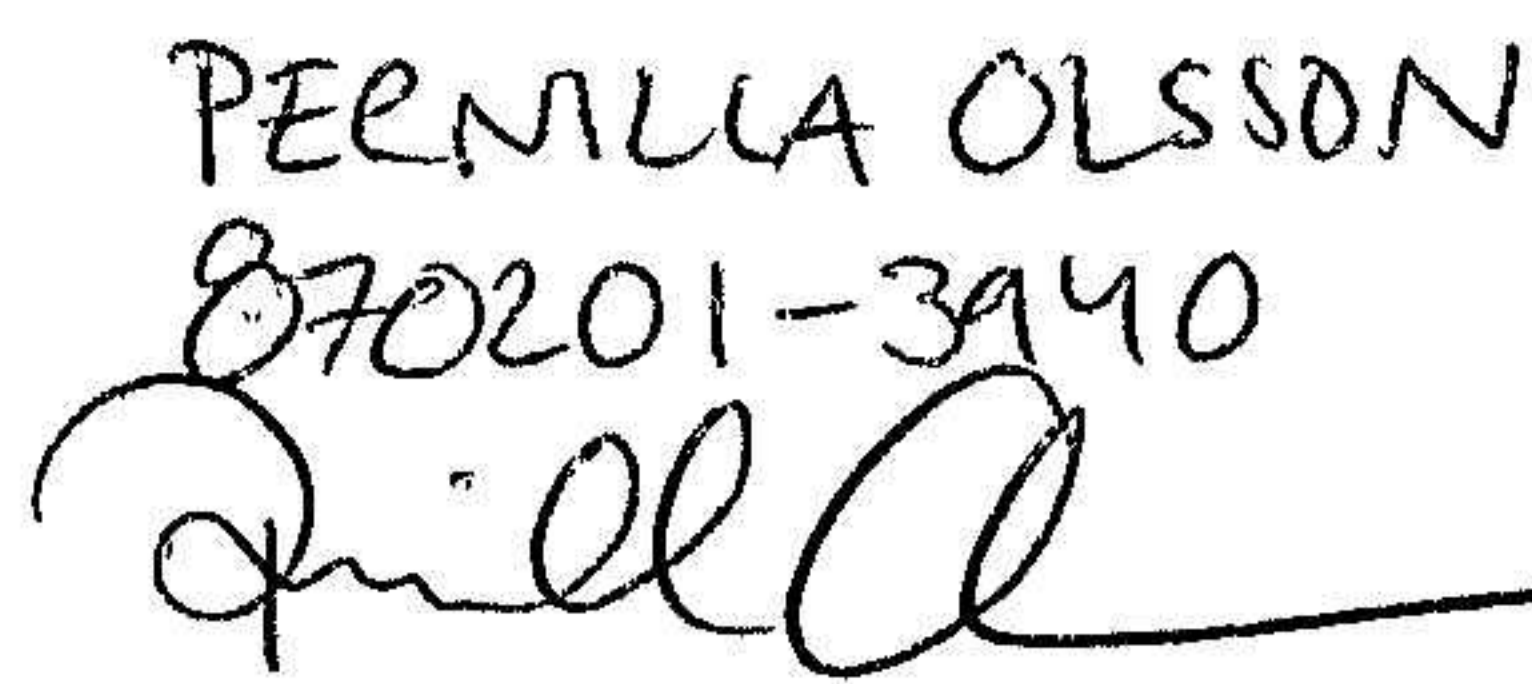 PERNILLA OLSSON
870201-3940